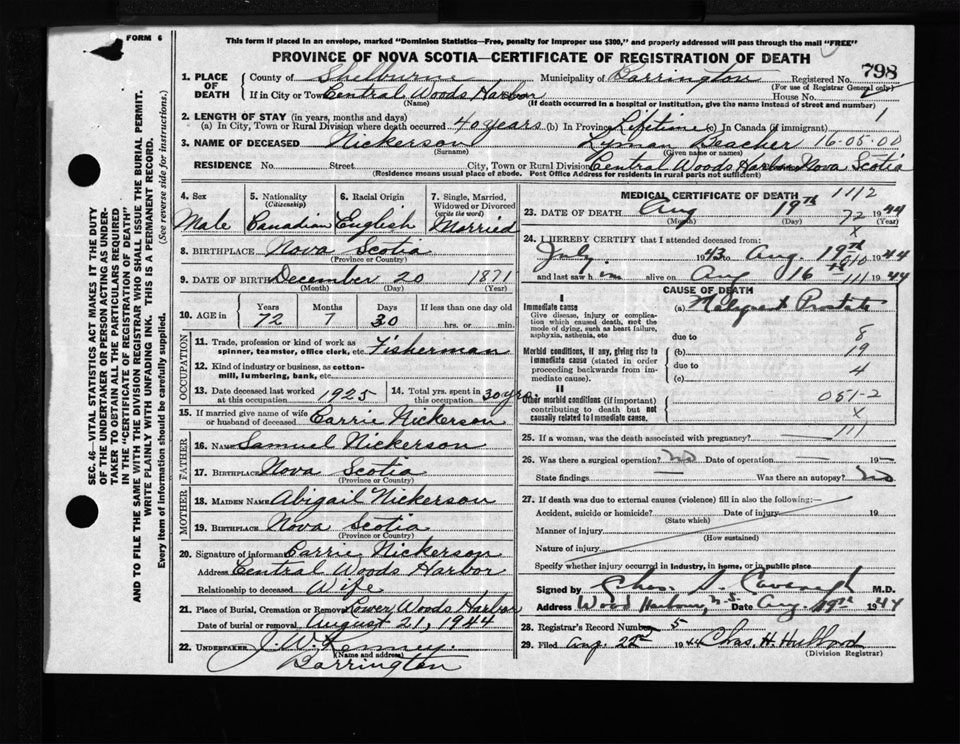 FORM 6
This form if placed in an envelope, marked "Dominion Statistics—Free, penalty for improper use $300," and properly addressed will pass through the mail "FREE"
PROVINCE OF NOVA SCOTIA—CERTIFICATE OF REGISTRATION OF DEATH
1. PLACE OF DEATH
County of Shelburne Municipality of Barrington Registered No. 798
(For use of Registrar General only)
If in City or Town Central Woods Harbor House No.
(Name) (If death occurred in a hospital or institution, give the name instead of street and number)
2. LENGTH OF STAY (in years, months and days)
(a) In City, Town or Rural Division where death occurred 40 years (b) In Province Lifetime (c) In Canada (if immigrant) 1
3. NAME OF DECEASED Nickerson Lyman Beacher 16-05-00
(Surname) (Given name or names)
RESIDENCE No. Street City, Town or Rural Division Central Woods Harbor Nova Scotia
(Residence means usual place of abode. Post Office Address for residents in rural parts not sufficient)
4. Sex
Male
5. Nationality
(Citizenship)
Canadian
6. Racial Origin
English
7. Single, Married, Widowed or Divorced
(write the word)
Married
8. BIRTHPLACE Nova Scotia
(Province or Country)
9. DATE OF BIRTH December 20 1871
(Month) (Day) (Year)
10. AGE in
Years Months Days If less than one day old
72 7 30 hrs. or min.
OCCUPATION
11. Trade, profession or kind of work as
spinner, teamster, office clerk, etc. Fisherman
12. Kind of industry or business, as cotton-
mill, lumbering, bank, etc.
13. Date deceased last worked
at this occupation 1925
14. Total yrs. spent in
this occupation 30 yrs
15. If married give name of wife
or husband of deceased Carrie Nickerson
FATHER
16. Name Samuel Nickerson
17. Birthplace Nova Scotia
(Province or Country)
MOTHER
18. MAIDEN NAME Abigail Nickerson
19. BIRTHPLACE Nova Scotia
(Province or Country)
20. Signature of informant Carrie Nickerson
Address Central Woods Harbor
Relationship to deceased Wife
21. Place of Burial, Cremation or Removal Lower Woods Harbor
Date of burial or removal August 21, 1944
22. UNDERTAKER J. W. Kenney.
(Name and address)
Barrington
MEDICAL CERTIFICATE OF DEATH 1112
23. DATE OF DEATH Aug 19th 1944
72
(Month) (Day) (Year)
x
24. I HEREBY CERTIFY that I attended deceased from:
July 1943 to Aug. 19th 1944
010
and last saw h im alive on Aug 16th 1944
111
CAUSE OF DEATH
I
Immediate cause
Give disease, injury or complication which caused death, not the mode of dying, such as heart failure, asphyxia, asthenia, etc
(a) Malignant Prostate
due to 8
Morbid conditions, if any, giving rise to immediate cause (stated in order proceeding backwards from immediate cause).
(b) 19
due to 4
(c)
II
Other morbid conditions (if important) contributing to death but not causally related to immediate cause.
051-2
x
111
25. If a woman, was the death associated with pregnancy?
26. Was there a surgical operation? no Date of operation 19
State findings Was there an autopsy? no
27. If death was due to external causes (violence) fill in also the following:—
Accident, suicide or homicide? Date of injury 19
(State which)
Manner of injury
(How sustained)
Nature of injury
Specify whether injury occurred in industry, in home, or in public place
Signed by Chas S. Cavanagh M.D.
Address Wood Harbour, N.S. Date Aug. 19th 1944
28. Registrar's Record Number 5
29. Filed Aug. 22nd 1944 Chas. H. Hubbard
(Division Registrar)
SEC. 46—VITAL STATISTICS ACT MAKES IT THE DUTY
OF THE UNDERTAKER OR PERSON ACTING AS UNDER-
TAKER TO OBTAIN ALL THE PARTICULARS REQUIRED
IN THE "CERTIFICATE OF REGISTRATION OF DEATH"
AND TO FILE THE SAME WITH THE DIVISION REGISTRAR WHO SHALL ISSUE THE BURIAL PERMIT.
WRITE PLAINLY WITH UNFADING INK. THIS IS A PERMANENT RECORD.
Every item of information should be carefully supplied. (See reverse side for instructions.)